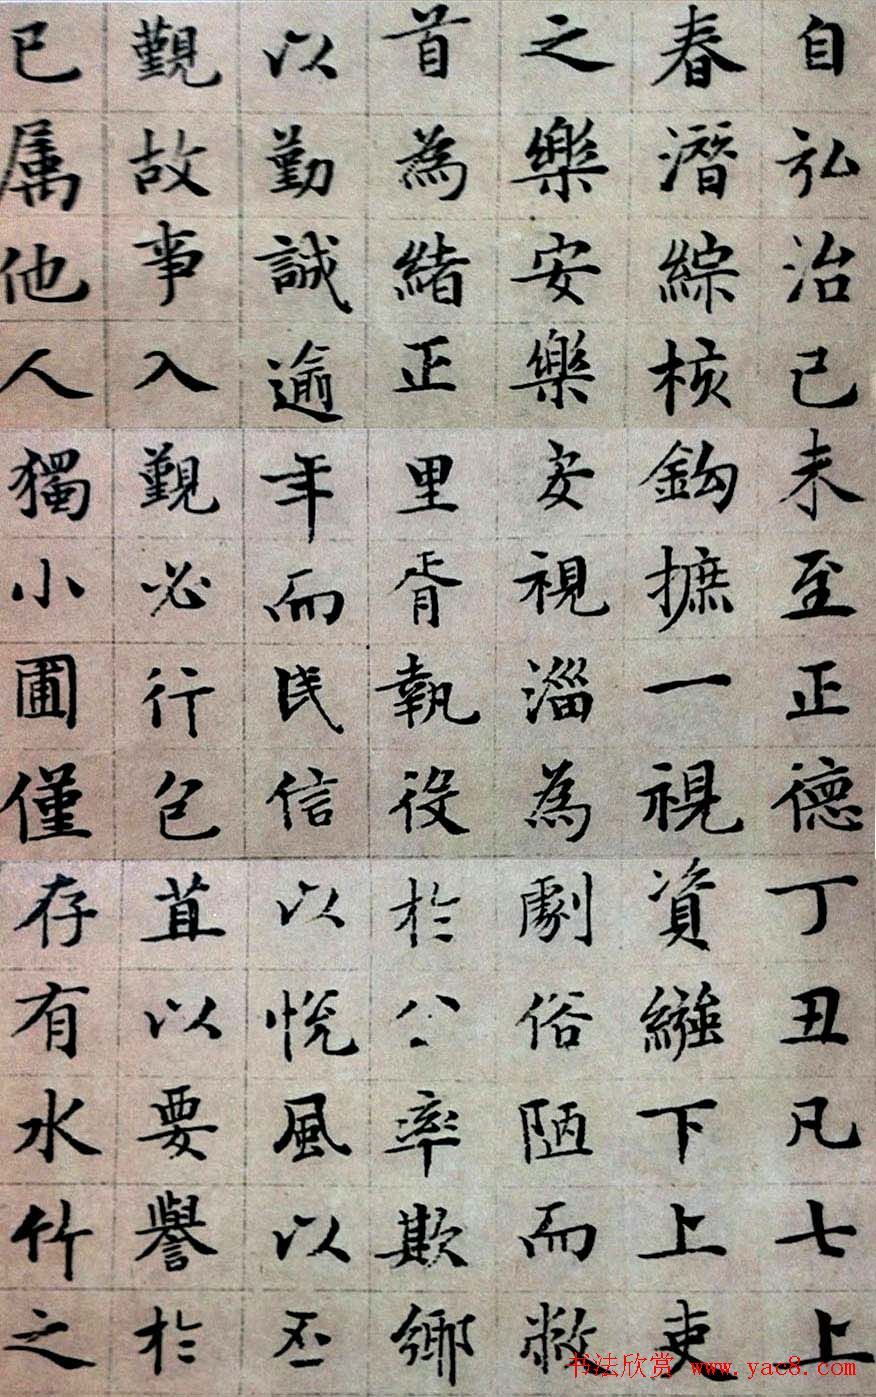 自弘治己未至正德丁丑凡七上
春潛綜核鈎摭一視資繩下上吏
之樂安樂安視淄為劇俗陋而敝
首為緒正里胥執役於公率欺鄉
以勤誠逾年而民信以悅風以丕
覲故事入覲必行包苴以要譽於
已属他人獨小圃僅存有水竹之
书法欣赏 www.yac8.com